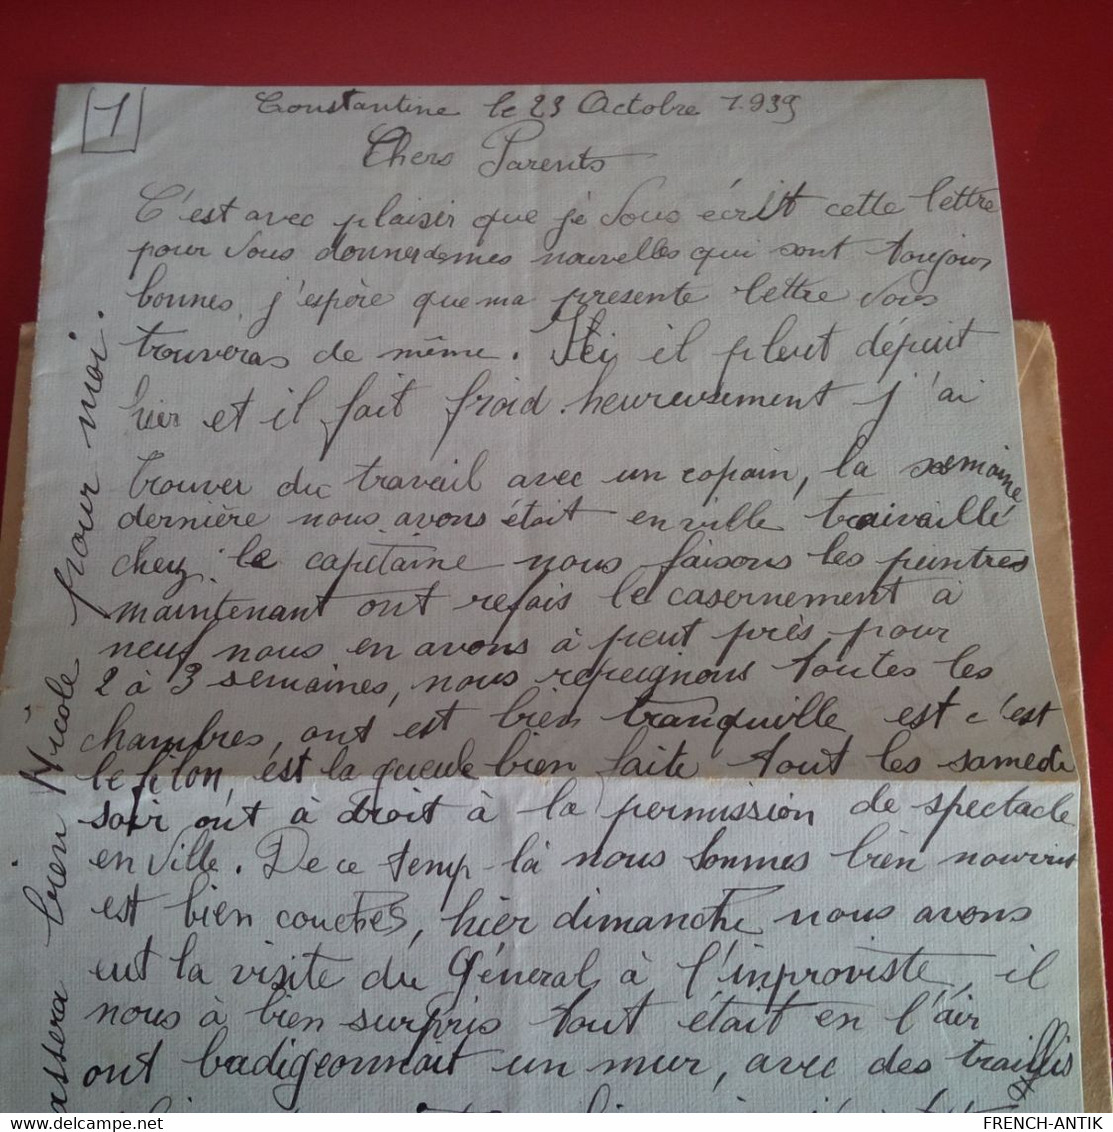 1
Constantine le 23 Octobre 1.939
Chers Parents
C'est avec plaisir que je vous écrit cette lettre
pour vous donner de mes nouvelles qui sont toujours
bonnes, j'espère que ma presente lettre vous
trouveras de même. Ici il pleut dépuit
hier et il fait froid. heureusement j'ai
trouver du travail avec un copain, la semaine
dernière nous avons était en ville travaillé
chez le capitaine nous faisons les peintres
maintenant ont refais le casernement à
neuf nous en avons à peut près pour
2 à 3 semaines, nous repeignons toutes les
chambres, ont est bien tranquille, est c'est
le filon, est la gueule bien faite tout les samedi
soir ont à droit à la permission de spectacle
en ville. De ce temp-là nous sommes bien nourris
est bien couchés, hier dimanche nous avons
eut la visite du Général à l'improviste, il
nous à bien surpris tout était en l'air
ont badigeonnait un mur, avec des traillis
bien Nicole pour moi.
FRENCH-ANTIK